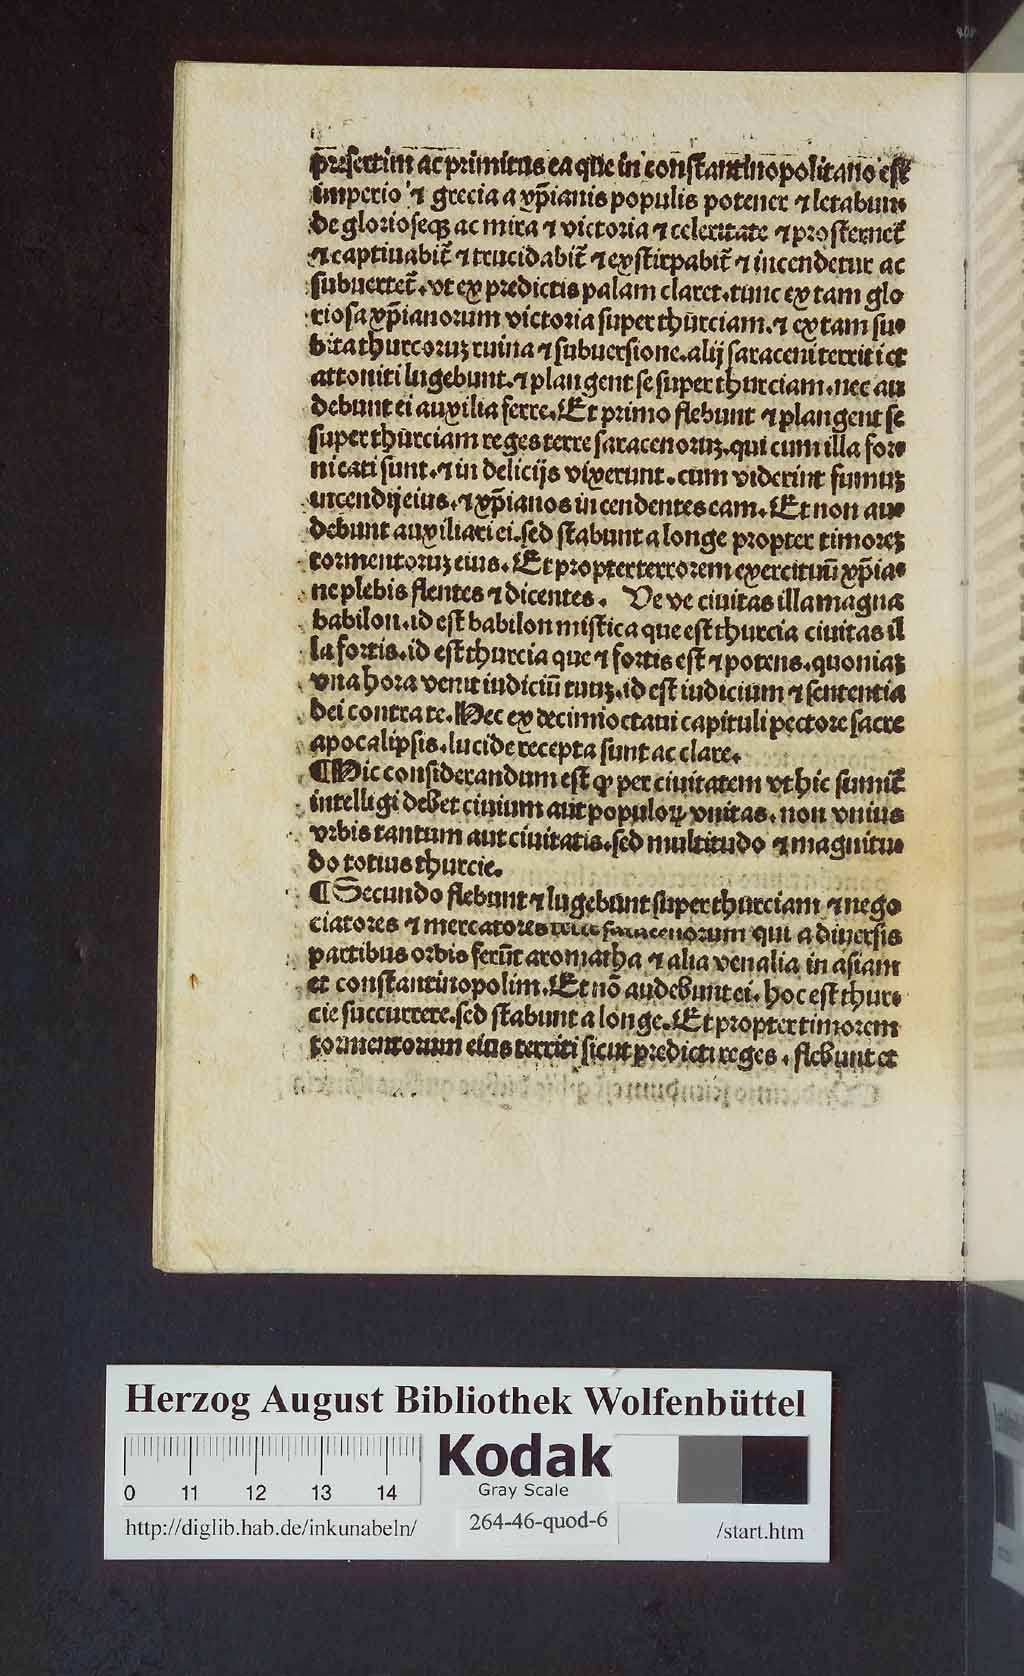 p̄resertim ac primitus ea que in constantinopolitano est
imperio ⁊ grecia a xp̄ianis populis potener ⁊ letabun⸗
de gloriosęqȝ ac mira ⁊ victoria ⁊ celeritate ⁊ prosternet᷑
⁊ captiuabit᷑ ⁊ trucidabit᷑ ⁊ exstirpabit᷑ ⁊ incendetur ac
subuertet᷑. vt ex predictis palam claret. tunc ex tam glo
riosa xp̄ianorum victoria super thurciam. ⁊ ex tam su⸗
bita thurcoruȝ ruina ⁊ subuersione. alij saraceni territi et
attoniti lugebunt. ⁊ plangent se super thurciam. nec au
debunt ei auxilia ferre. Et primo flebunt ⁊ plangent se
super thurciam reges terre saracenoruȝ. qui cum illa for⸗
nicati sunt. ⁊ in delicijs vixerunt. cum viderint fumuȝ
incendij eius. ⁊ xp̄ianos incendentes eam. Et non au⸗
debunt auxiliari ei. sed stabunt a longe propter timoreȝ
tormentoruȝ eius. Et propter terrorem exercituū xp̄ia⸗
ne plebis flentes ⁊ dicentes. Ve ve ciuitas illa magna
babilon. id est babilon mistica que est thurcia ciuitas il
la fortis. id est thurcia que ⁊ fortis est ⁊ potens. quoniaȝ
vna hora venit iudiciū tuuȝ. id est iudicium ⁊ sententia
dei contra te. Hec ex decimioctaui capituli pectore sacre
apocalipsis. lucide recepta sunt ac clare.
¶ Hic considerandum est ꝙ per ciuitatem vt hic sumit᷑
intelligi debet ciuium aut populoꝝ vnitas. non vnius
vrbis tantum aut ciuitatis. sed multitudo ⁊ magnitu⸗
do totius thurcie.
¶ Secundo flebunt ⁊ lugebunt super thurciam ⁊ nego
ciatores ⁊ mercatores terre saracenorum qui a diuersis
partibus orbis ferūt aromatha ⁊ alia venalia in asiam
et constantinopolim. Et nō audebunt ei. hoc est thur⸗
cie succurrere. sed stabunt a longe. Et propter timorem
tormentorum eius territi sicut predicti reges. flebunt et
Herzog August Bibliothek Wolfenbüttel
Kodak
Gray Scale
0 11 12 13 14
http://diglib.hab.de/inkunabeln/
264-46-quod-6
/start.htm